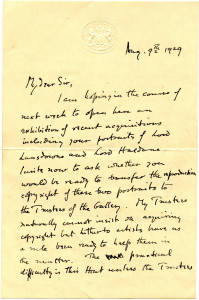 Aug. 9th 1929
My dear Sir,
I am hoping in the course of
next week to open here an
exhibition of recent acquisitions
including your portraits of Lord
Lansdowne and Lord Haldane
I write now to ask whether you
would be ready to transfer the reproduction
copyright of these two portraits to
the Trustees of the Gallery. My Trustees
naturally cannot insist on acquiring
copyright but hitherto artists have as
a rule been ready to help them in
the matter. The practical
difficulty in this that unless the Trustees